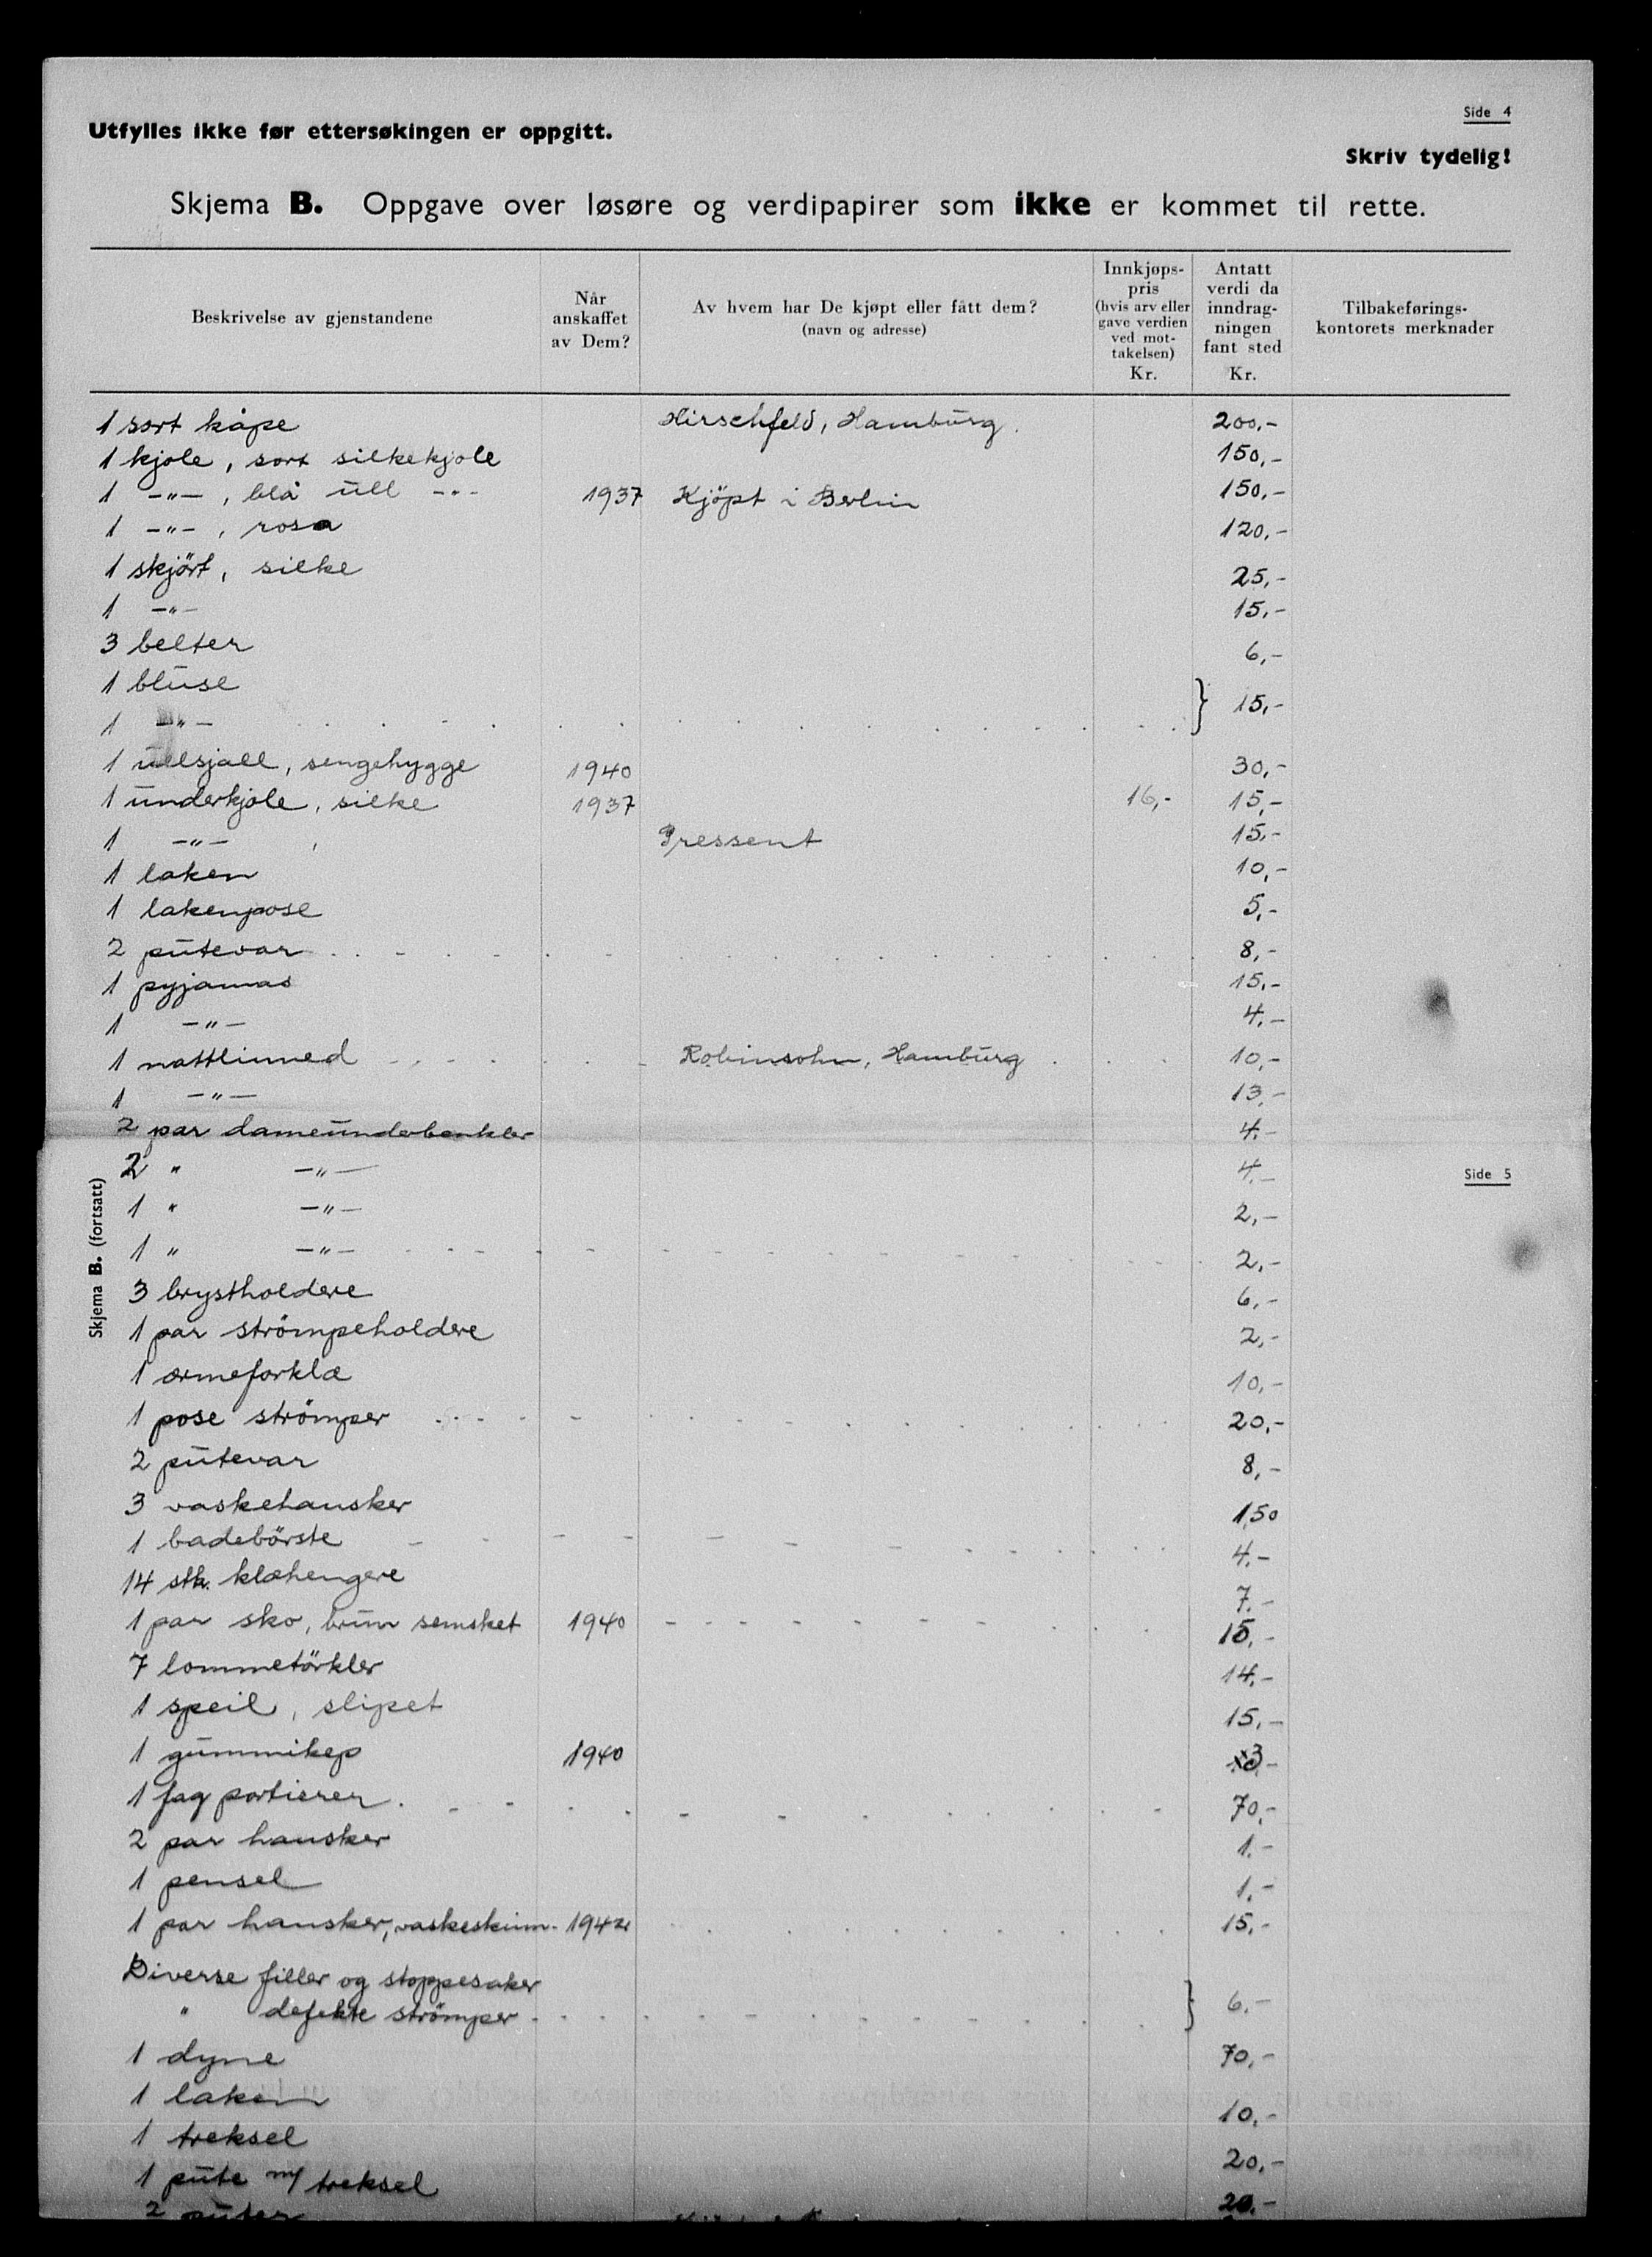 Side 4
Utfylles ikke før ettersøkingen er oppgitt.
Skriv tydelig!
Skjema B. Oppgave over løsøre og verdipapirer som ikke er kommet til rette.
Beskrivelse av gjenstandene
Når anskaffet av Dem?
Av hvem har De kjøpt eller fått dem? (navn og adresse)
Innkjøps-pris (hvis arv eller gave verdien ved mot-takelsen) Kr.
Antatt verdi da inndrag-ningen fant sted Kr.
Tilbakeførings-kontorets merknader
1 sort kåpe Hirschfeld, Hamburg. 200,-
1 kjole, sort silkekjole 150,-
1 -"-, blå ull -"- 1937 Kjöpt i Berlin 150,-
1 -"-, rosa 120,-
1 skjört, silke 25,-
1 -"- 15,-
3 belter 6,-
1 bluse
1 -"- } 15,-
1 ullsjall, sengehygge 1940 30,-
1 underkjole, silke 1937 16,- 15,-
1 -"- , Pressent 15,-
1 laken 10,-
1 lakenpose 5,-
2 putevar 8,-
1 pyjamas 15,-
1 -"- 4,-
1 nattlinned Robinsohn, Hamburg 10,-
1 -"- 13,-
2 par dameunderbenkler 4,-
2 " -"- 4,-
Side 5
Skjema B. (fortsatt)
1 " -"- 2,-
1 " -"- 2,-
3 brystholdere 6,-
1 par strömpeholdere 2,-
1 ermeforklæ 10,-
1 pose strömper 20,-
2 putevar 8,-
3 vaskehansker 1,50
1 badebörste 4,-
14 stk. klæhengere 7,-
1 par sko, brun semsket 1940 15,-
7 lommetörkler 14,-
1 speil, slipet 15,-
1 gummikep 1940 3,-
1 fag portierer 70,-
2 par hansker 1,-
1 pensel 1,-
1 par hansker, vaskeskinn 1942 15,-
Diverse filler og stoppesaker
" defekte strömper } 6,-
1 dyne 70,-
1 laken 10,-
1 treksel 20,-
1 pute m/ treksel 20,-
2 puter